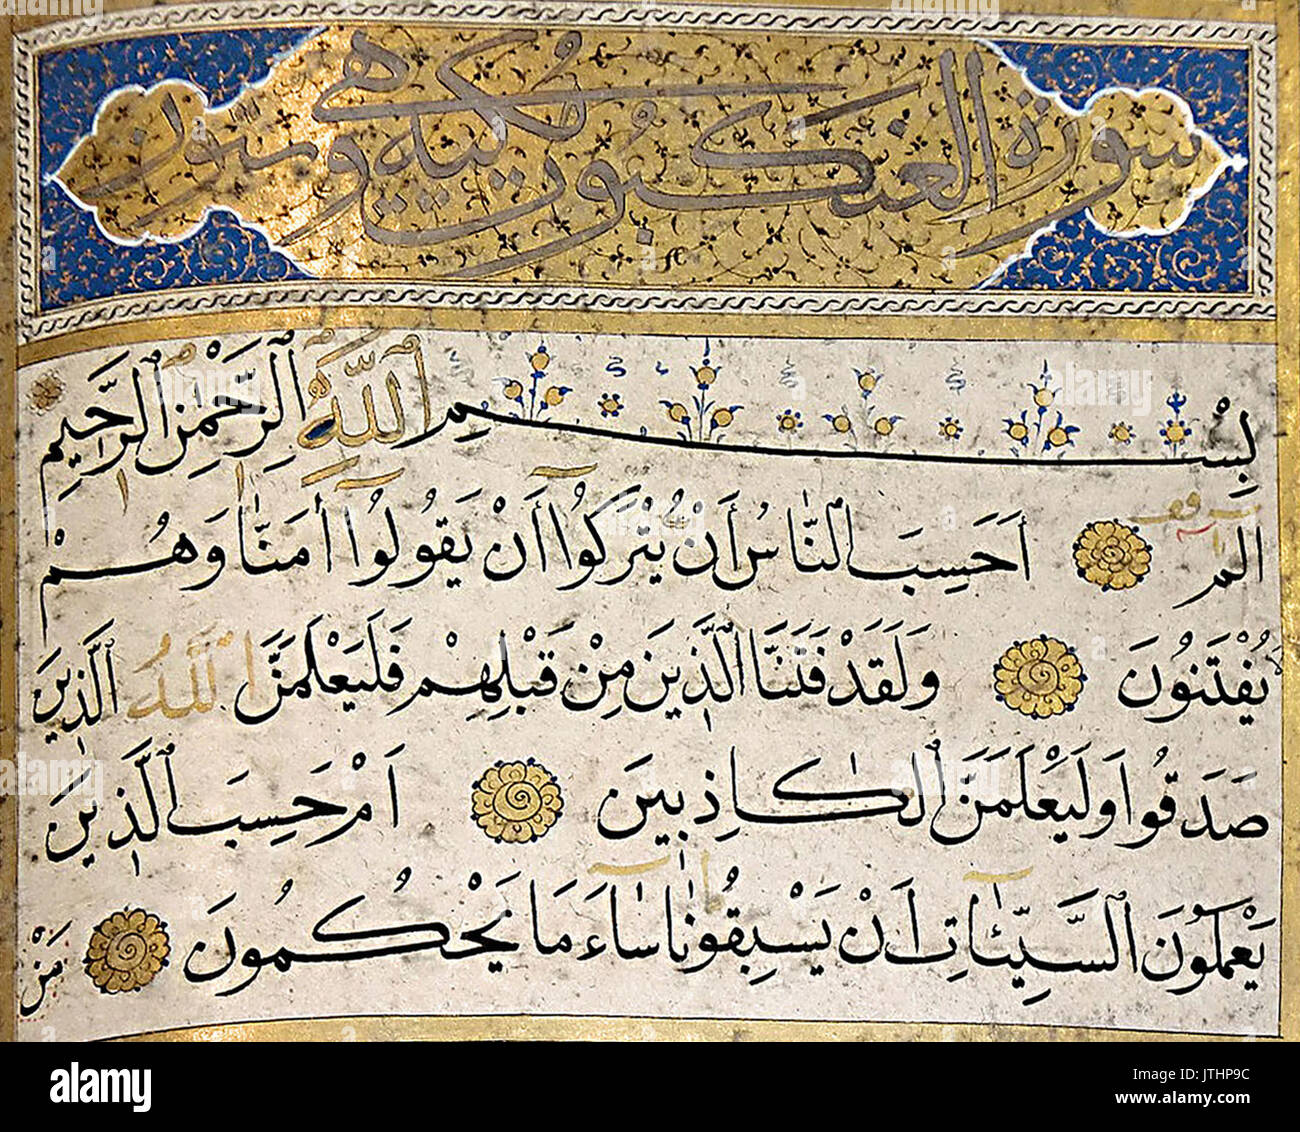 سورة العنكبوت مكية وهي ستون
بِسْمِ اللَّهِ الرَّحْمٰنِ الرَّحِيمِ
الٓمٓ اَحَسِبَ النَّاسُ أَنْ يُتْرَكُوٓا أَنْ يَقُولُوٓا اٰمَنَّا وَهُمْ
يُفْتَنُونَ وَلَقَدْ فَتَنَّا الَّذِينَ مِنْ قَبْلِهِمْ فَلَيَعْلَمَنَّ اللَّهُ الَّذِينَ
صَدَقُوا وَلَيَعْلَمَنَّ الْكَاذِبِينَ اَمْ حَسِبَ الَّذِينَ
يَعْمَلُونَ السَّيِّئَاتِ اَنْ يَسْبِقُونَا سَاءَ مَا يَحْكُمُونَ مَنْ
alamy
Image ID: JTHP9C
www.alamy.com